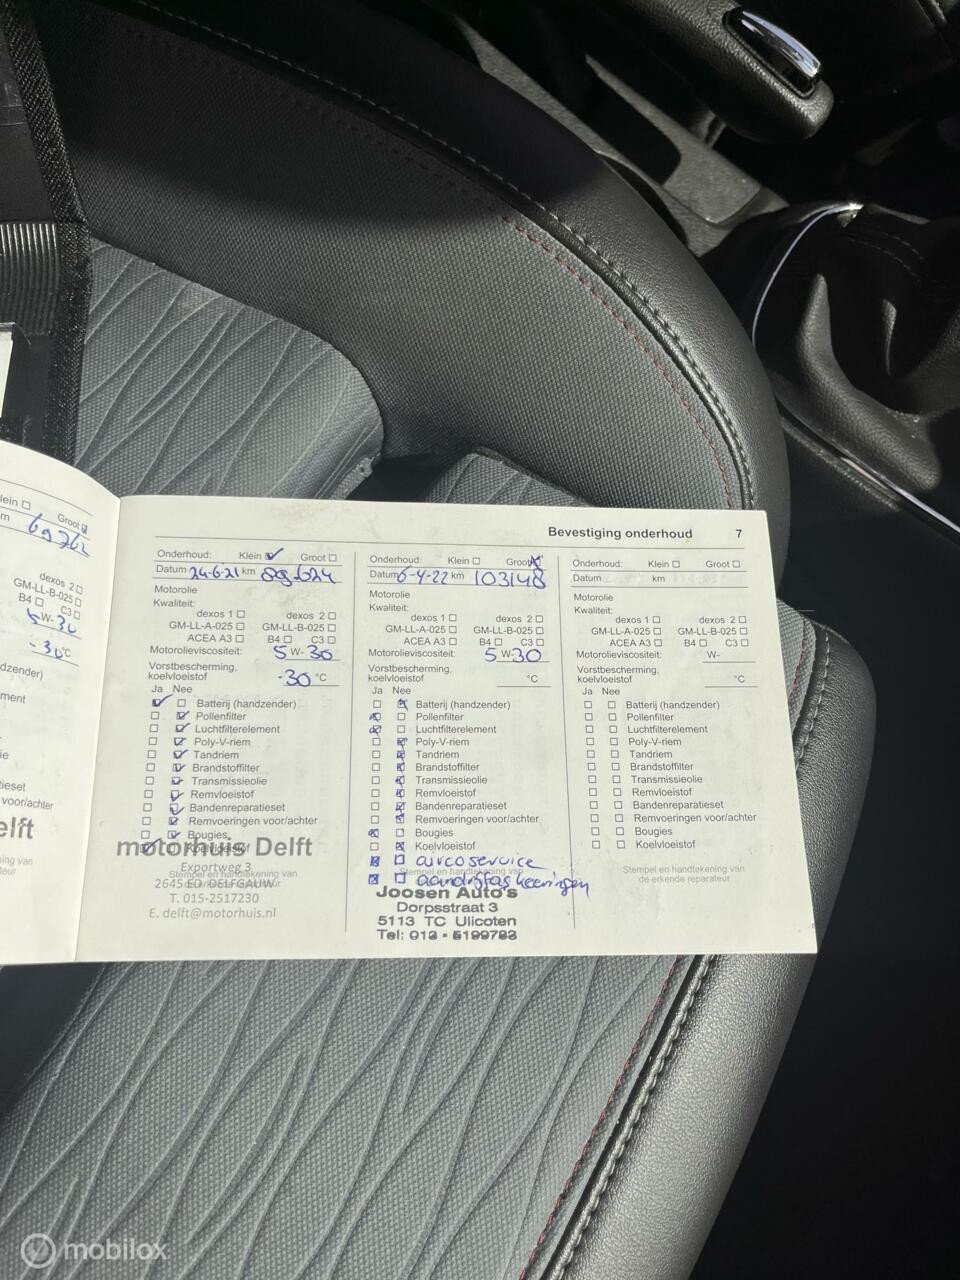 Groot
69762
dexos 2
GM-LL-B-025
B4 C3
5 W- 30
-30 °C
voor/achter
Bevestiging onderhoud 7
Onderhoud: Klein Groot
Datum 24-6-21 km 89.624
Motorolie
Kwaliteit:
dexos 1 dexos 2
GM-LL-A-025 GM-LL-B-025
ACEA A3 B4 C3
Motorolieviscositeit: 5 W- 30
Vorstbescherming,
koelvloeistof -30 °C
Ja Nee
Batterij (handzender)
Pollenfilter
Luchtfilterelement
Poly-V-riem
Tandriem
Brandstoffilter
Transmissieolie
Remvloeistof
Bandenreparatieset
Remvoeringen voor/achter
Bougies
Koelvloeistof
motorhuis Delft
Exportweg 3
Stempel en handtekening van
2645 ED DELFGAUW
T. 015-2517230
E. delft@motorhuis.nl
Onderhoud: Klein Groot
Datum 6-4-22 km 103148
Motorolie
Kwaliteit:
dexos 1 dexos 2
GM-LL-A-025 GM-LL-B-025
ACEA A3 B4 C3
Motorolieviscositeit: 5 W- 30
Vorstbescherming,
koelvloeistof °C
Ja Nee
Batterij (handzender)
Pollenfilter
Luchtfilterelement
Poly-V-riem
Tandriem
Brandstoffilter
Transmissieolie
Remvloeistof
Bandenreparatieset
Remvoeringen voor/achter
Bougies
Koelvloeistof
aircoservice
Stempel en handtekening van
Joosen Auto's
Dorpsstraat 3
5113 TC Ulicoten
Tel: 013 - 5199783
Onderhoud: Klein Groot
Datum km
Motorolie
Kwaliteit:
dexos 1 dexos 2
GM-LL-A-025 GM-LL-B-025
ACEA A3 B4 C3
Motorolieviscositeit: W-
Vorstbescherming,
koelvloeistof °C
Ja Nee
Batterij (handzender)
Pollenfilter
Luchtfilterelement
Poly-V-riem
Tandriem
Brandstoffilter
Transmissieolie
Remvloeistof
Bandenreparatieset
Remvoeringen voor/achter
Bougies
Koelvloeistof
Stempel en handtekening van
de erkende reparateur
mobilox